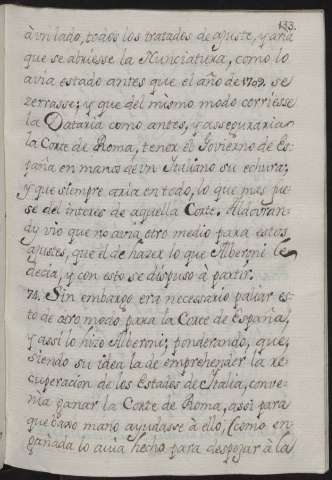 133.
à vn lado, todos los tratados de ajuste, y aria
que se abriesse la Nunciatura, como lo
avia estado antes que el año de 1709. se
zerrasse; y que del mismo modo corriesse
la Dataria como antes, y asseguraria
la Corte de Roma, tener el Govierno de Es-
paña en manos de vn Italiano su echura;
y que siempre aria en todo, lo que mas fue-
se del interès de aquella Corte. Aldovran-
dy vio que no avia otro medio para estos
ajustes, que el de hazer lo que Alberoni le
decia, y con esto se dispuso à partir.
74. Sin embargo era necessario paliar es-
to de otro modo para la Corte de España,
y assi lo hizo Alberoni, ponderando, que,
siendo su idea la de emprehender la re-
cuperacion de los Estados de Italia, conve-
nia ganar la Corte de Roma, assi para
que bajo mano ayudasse à ello, (como en-
gañada lo avia hecho para despojar à la